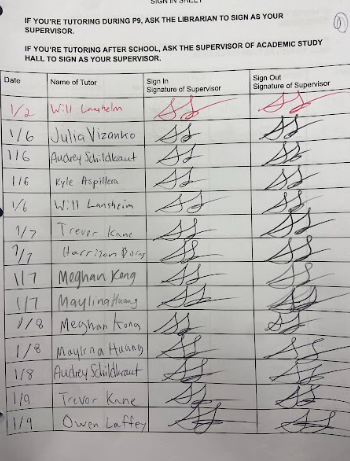 SIGN IN SHEET
IF YOU'RE TUTORING DURING P9, ASK THE LIBRARIAN TO SIGN AS YOUR
SUPERVISOR.
IF YOU'RE TUTORING AFTER SCHOOL, ASK THE SUPERVISOR OF ACADEMIC STUDY
HALL TO SIGN AS YOUR SUPERVISOR.
Date Name of Tutor Sign In Signature of Supervisor Sign Out Signature of Supervisor
1/2 Will
1/6 Julia Vizanko
1/6 Audrey Schildkraut
1/6 Kyle Aspillera
1/6 Will Lansheim
1/7 Trever Kane
1/7 Harrison
1/7 Meghan Kong
1/7 Maylina Huang
1/8 Meghan Kong
1/8 Maylina Huang
1/8 Audrey Schildkraut
1/9 Trevor Kane
1/9 Owen Laffey